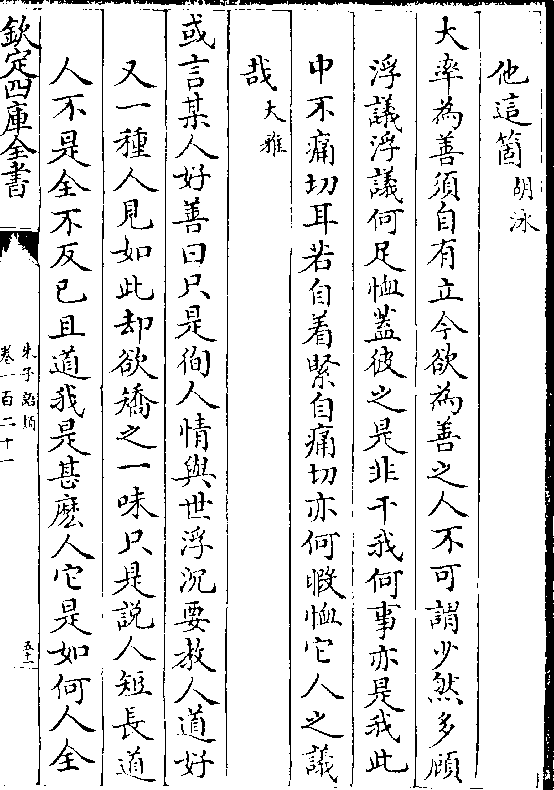 他這箇胡泳
大率為善須自有立今欲為善之人不可謂少然多顧
浮議浮議何足恤蓋彼之是非干我何事亦是我此
中不痛切耳若自着緊自痛切亦何暇恤它人之議
哉大雅
或言某人好善曰只是徇人情與世浮沉要教人道好
又一種人見如此却欲矯之一味只是説人短長道
人不是全不反已且道我是甚麽人它是如何人全
欽定四庫全書
朱子語類
卷一百二十一